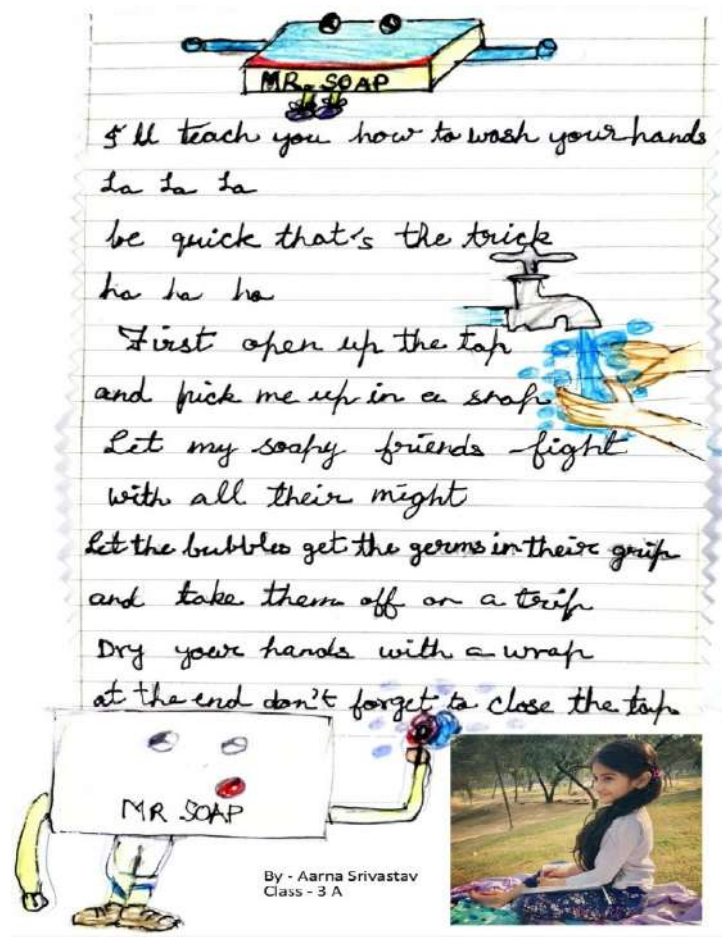 MR. SOAP
I'll teach you how to wash your hands
La La La
be quick that's the trick
ha ha ha
First open up the tap
and pick me up in a snap
Let my soapy friends fight
with all their might
Let the bubbles get the germs in their grip
and take them off on a trip
Dry your hands with a wrap
at the end don't forget to close the tap.
MR SOAP
By - Aarna Srivastav
Class - 3 A